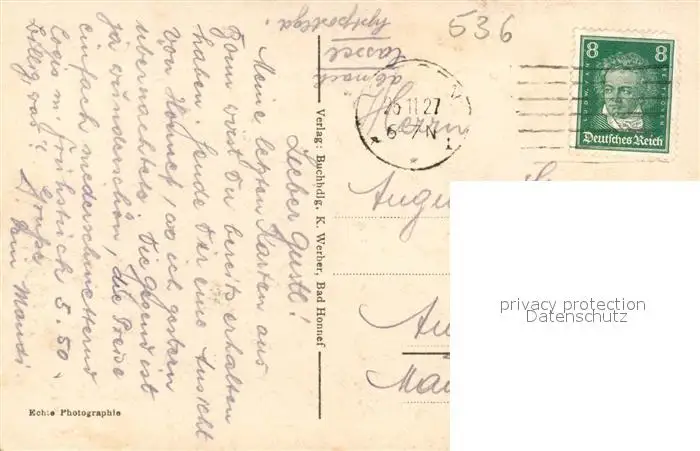 Lieber Gustl!
Meine letzten Karten aus
Bonn wirst Du bereits erhalten
haben. Sende Dir eine Ansicht
von Honnef, wo ich gestern
übernachtete. Die Gegend ist
ja wunderschön, die Preise
einfach niederschmetternd
Logis m. Frühstück 5.50.
billig was? Grüße
Dein Mandi
Echte Photographie
Verlag: Buchhdlg. K. Werber, Bad Honnef
536
ab, nach
Cassel
hptpostlga.
25.11.27
6-7N
8 8
LUDW. V. BEETHOVEN
Deutsches Reich
Herrn
Augu
Au
Mai
privacy protection
Datenschutz